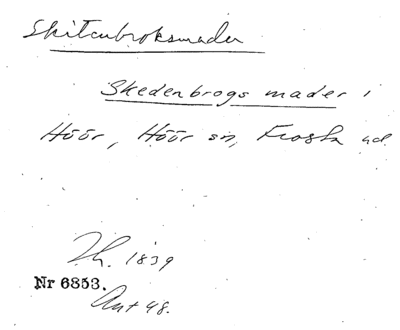 Skitenbroksmader
Skedenbrogs mader i
Höör, Höör sn, Frosta hd.
Th. 1839
Nr 6853.
Ant 48.